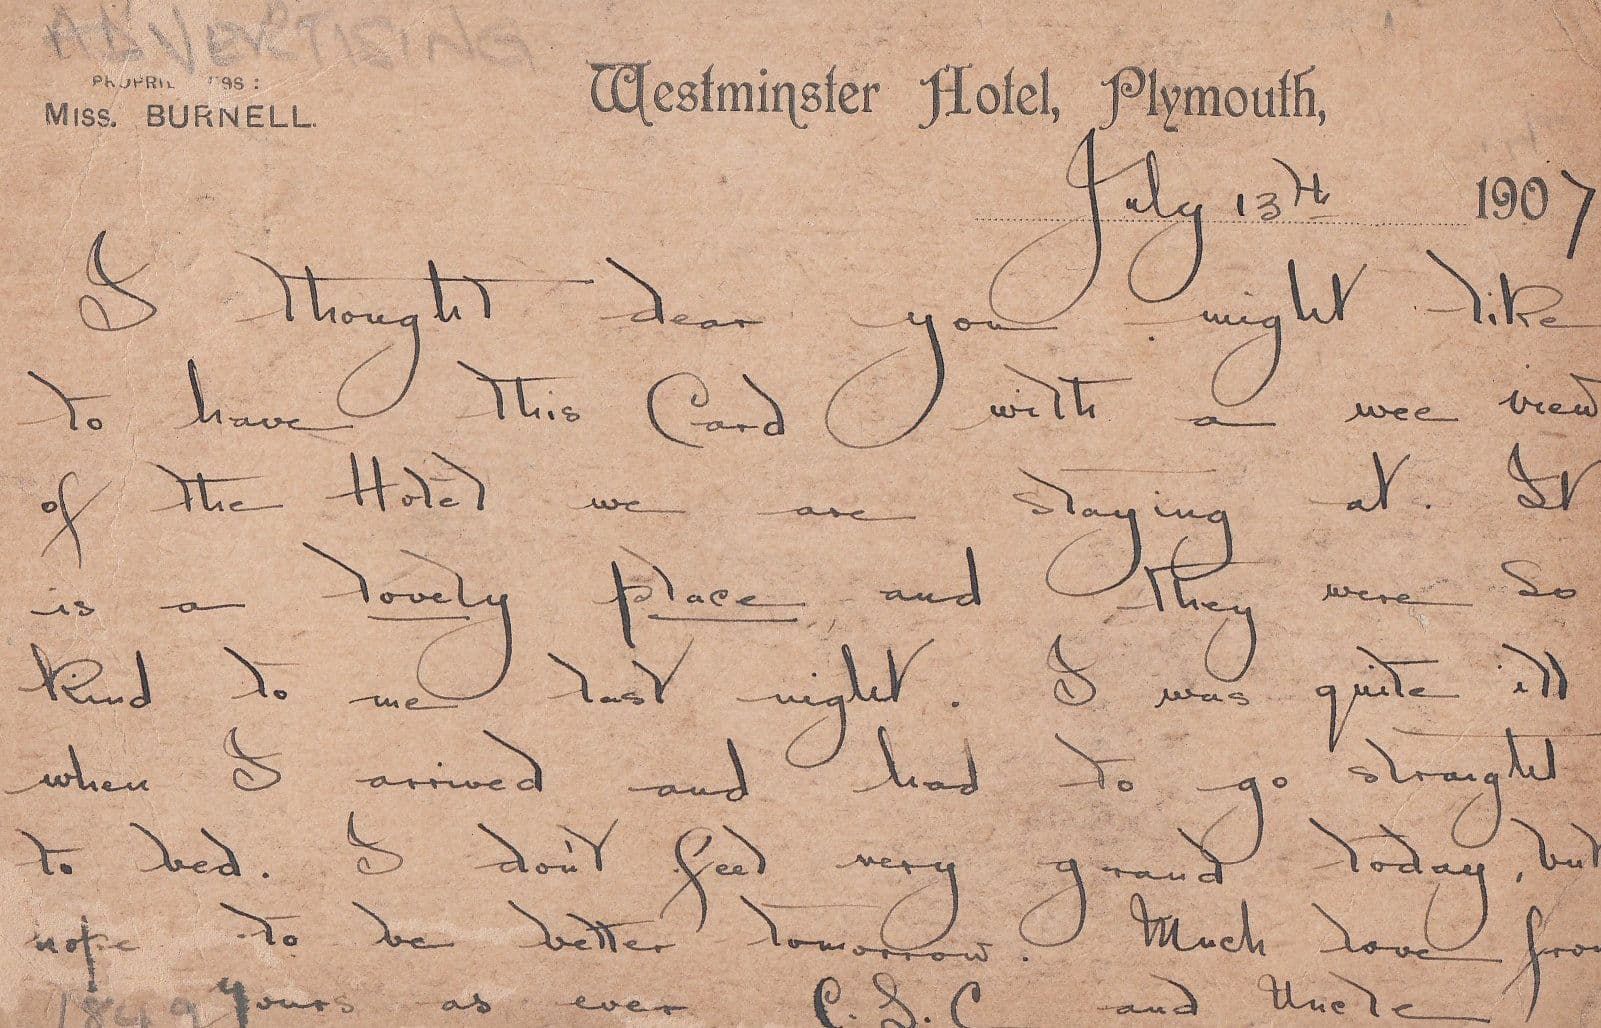 ADVERTISING
PROPRIETRESS:
MISS. BURNELL.
Westminster Hotel, Plymouth,
July 13th 1907
I thought dear you might like
to have this Card with a wee view
of the Hotel we are staying at. It
is a lovely place and they were so
kind to me last night. I was quite ill
when I arrived and had to go straight
to bed. I don't feel very grand today, but
hope to be better tomorrow. Much love from
yours as ever C.S.C and Uncle
1849